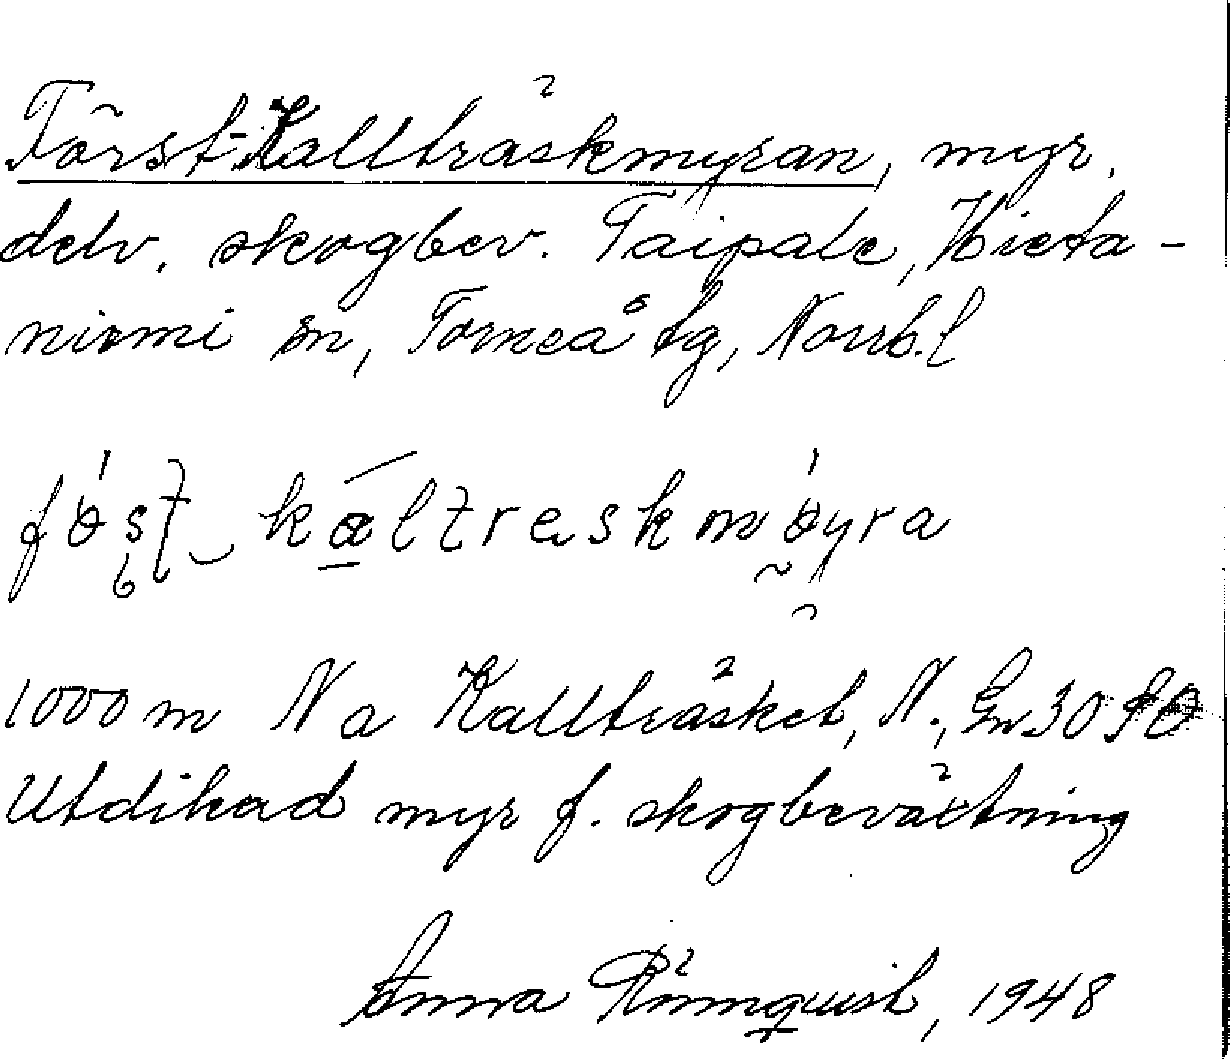 Först-Kallträskmyran, myr,
delv. skogbev. Taipale, Hieta-
niemi sn, Torneå tg, Norrb.l
1000 m N a Kallträsket, N.,
Utdikad myr f. skogbeväxtning
Anna Rönnquist, 1948